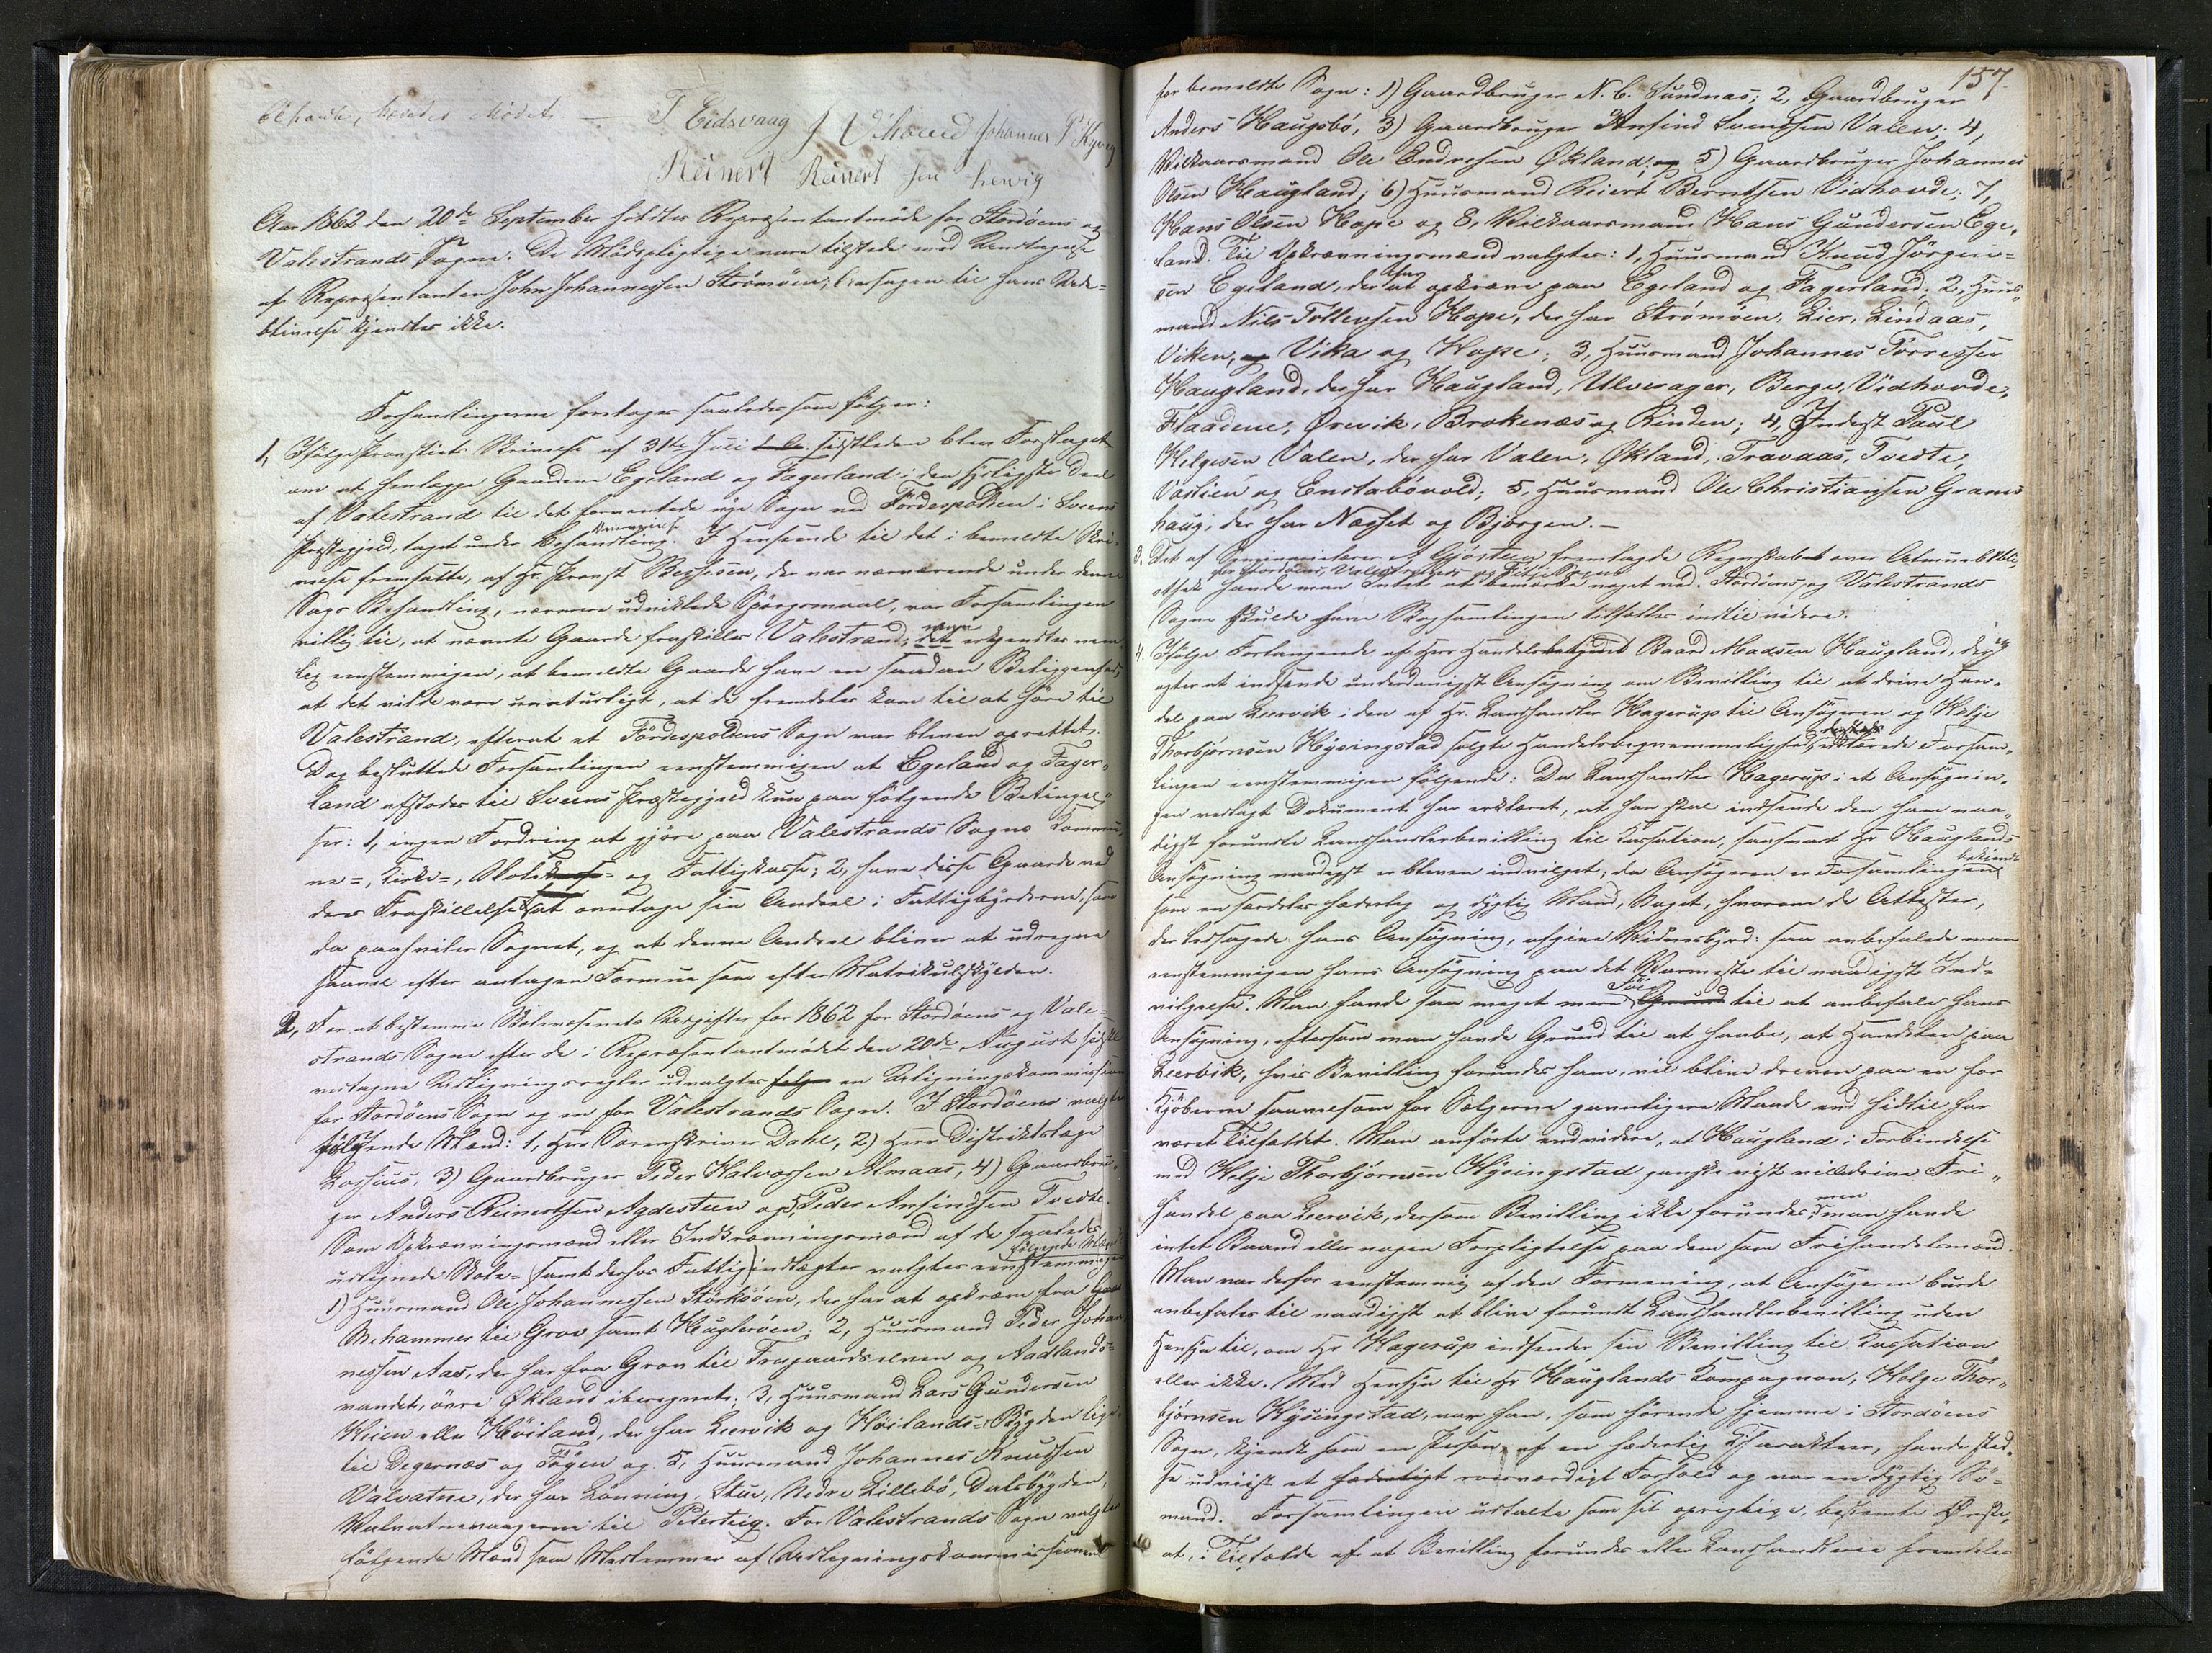 hævedes Mødet. — T Eidsvaag J Vihovd Johannes P Kyvig
Reinert Reinert sen hevig
Aar 1862 den 20de September holdtes Repræsentantmöde for Stordöens og
Valestrands Sogne. De Mödepligtige vare tilstede med Undtagelse
af Repræsentanten John Johannessen Strömöen; Aarsagen til hans Ude-
blivelse kjendtes ikke.
Forhandlingerne foretoges saaledes som fölger:
1, Ifölge Provstiets Skrivelse af 31te Juli sidstleden blev Forslaget
om at henlægge Gaardene Egeland og Fagerland i den sydligste Deel
af Valestrand til det forventede nye Sogn ved Fördespollen i Sveens
Præstegjeld, taget under Behandling. I Henseende til det i bemeldte Skri-
velse fremsatte, af Hr. Provst Bessesen, der var nærværende under denne
Sags Behandling, nærmere udviklede Spörgsmaal, var Forsamlingen
villig til, at nævnte Gaarde fraskilles Valestrand; det erkjendtes nem-
lig eenstemmigen, at bemeldte Gaarde have en saadan Beliggenhed,
at det vilde være unaturligt, at de fremdeles kom til at höre til
Valestrand, efterat et Fördespollens Sogn var bleven oprettet.
Dog besluttede Forsamlingen eenstemmigen at Egeland og Fager-
land afstodes til Sveens Præstegjeld kun paa fölgende Betingel-
ser: 1, ingen Fordring at gjöre paa Valestrands Sogns Kommu-
ne-, Kirke-, Skole- og Fattigkasse; 2, have disse Gaarde ved
deres Fraskillelse at overtage sin Andeel i Fattigbyrderne, som
da paahviler Sognet, og at denne Andeel bliver at udregne
saavel efter antagen Formue som efter Matrikulskylden.
2, For at bestemme Skolevæsenets Udgifter for 1862 for Stordöens og Vale-
strands Sogne efter de i Repræsentantmödet den 20de August sidstl.
vedtagne Udligningsregler udvalgtes en Udligningskommission
for Stordöens Sogn og en for Valestrands Sogn. I Stordöens valgtes
fölgende Mænd: 1, Herr Sorenskriver Dahl, 2) Herr Distriktslæge
Lossius, 3) Gaardbruger Peder Halvorsen Almaas, 4) Gaardbru-
ger Anders Reinertsen Agdesteen og 5, Peder Ansindsen Tvedte.
Som Opkrævningsmænd eller Indkrævningsmænd af de saaledes
udlignede Skole- samt derhos Fattigindtægter valgtes eenstemmigen fölgende Mænd
1) Huusmand Ole Johannessen Storksöen, der har at opkræve fra
Mehammer til Grov samt Huglenöen; 2, Huusmand Peder Johan-
nessen Aas, der har fra Grov til Frugaardselven og Aadlands-
vandet, övre Økland iberegnet; 3, Huusmand Lars Gundersen
Heien eller Höiland, der har Leervik og Höilands-Bygden lige
til Degernæs og Fögen og 5, Huusmand Johannes Knudsen
Valvatne, der har Lönning, Stue, Nedre Lillebö, Dalsbygden,
Valvatnevaagerne til Peterteig. For Valestrands Sogn valgtes
fölgende Mænd som Medlemmer af Udligningskommissionen
157.
for bemeldte Sogn: 1) Gaardbruger N. C. Sundnæs; 2, Gaardbruger
Anders Haugsbö, 3) Gaardbruger Ansind Svendsen Valen; 4,
Vilkaarsmand Ole Endresen Økland; og 5) Gaardbruger Johannes
Olsen Haugland; 6) Huusmand Reiert Berntsen Vidhovde; 7,
Hans Olsen Hope og 8, Vilkaarsmand Hans Gundersen Ege-
land. Til Opkrævningsmænd valgtes: 1, Huusmand Knud Jörgen-
sen Egeland, der har at opkræve paa Egeland og Fagerland. 2, Huus-
mand Nils Tollevsen Hope, der har Strömöen, Lier, Lindaas,
Viken, og Vika og Hope; 3, Huusmand Johannes Törresen
Haugland, der har Haugland, Ulverager, Berge, Vidhovde,
Flaadene, Ørevik, Brokenæs og Rinden; 4, Inderst Paul
Helgesen Valen, der har Valen, Økland, Travaas, Tvedte,
Vaslien og Enstabövold; 5, Huusmand Ole Christiansen Grans-
haug, der har Næsset og Björgen. —
3. Det af A Gjösteen fremlagde Regnskabet over Almuebibli-
othek for Stordöens, Valestrands og Fitje Sogne havde man Intet at bemærke noget ved. Stordöens og Valestrands
Sogne skulde have Bogsamlingen tilfælles indtil videre.
4. Ifölge Forlangende af Herr Handelsbetjent Baard Madsen Haugland, der
agter at indsende underdanigst Ansögning om Bevilling til at drive Han-
del paa Leervik i den af Hr. Landhandler Hagerup til Ansögeren og Helje
Thorbjørnsen Hysingstad solgte Handelsbeqvemmelighed, erklærede Forsam-
lingen eenstemmigen fölgende: Da Landhandler Hagerup i et Ansögnin-
gen vedlagt Dokument har erklæret, at han skal indsende den ham naa-
digst forundte Landhandlerbevilling til Kassation, saasnart Hr Hauglands
Ansögning naadigst er bleven indvilget; da Ansögeren er Forsamlingen bekjendt
som en særdeles hæderlig og dygtig Mand, Noget, hvorom de Attester,
der ledsagede hans Ansögning, afgive Vidnesbyrd: saa anbefalede man
eenstemmigen hans Ansögning paa det Varmeste til naadigst Ind-
vilgelse. Man fandt saa meget mere Föie til at anbefale hans
Ansögning, eftersom man havde Grund til at haabe, at Handelen paa
Leervik, hvis Bevilling forundes ham, vil blive dreven paa en for
Kjöberne saavelsom for Sælgerne gunstigere Maade end hidtil har
været Tilfældet. Man anförte endvidere, at Haugland i Forbindelse
med Helje Thorbjørnsen Hysingstad ganske vist vilde drive Fri-
handel paa Leervik, dersom Bevilling ikke forundes; men man havde
intet Baand eller nogen Forpligtelse paa dem som Frihandelsmænd.
Man var derfor eenstemmig af den Formening, at Ansögeren burde
anbefales til naadigst at blive forundt Landhandlerbevilling uden
Hensyn til, om Hr Hagerup indsender sin Bevilling til Kassation
eller ikke. Med Hensyn til Hr Hauglands Kompagnon, Helge Thor-
bjørnsen Hysingstad, var han, som hörende hjemme i Stordöens
Sogn, kjendt som en Person af en hæderlig Charakteer, havde sted-
se udviist et roesværdigt Forhold og var en dygtig Sö-
mand. Forsamlingen udtalte som sit oprigtige, bestemte Ønske,
at, i Tilfælde af at Bevilling forundes eller Landhandlerie fremdeles